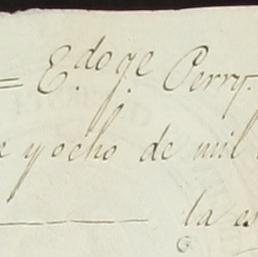 = E.do g.e Perry.
e y ocho de mil
la es